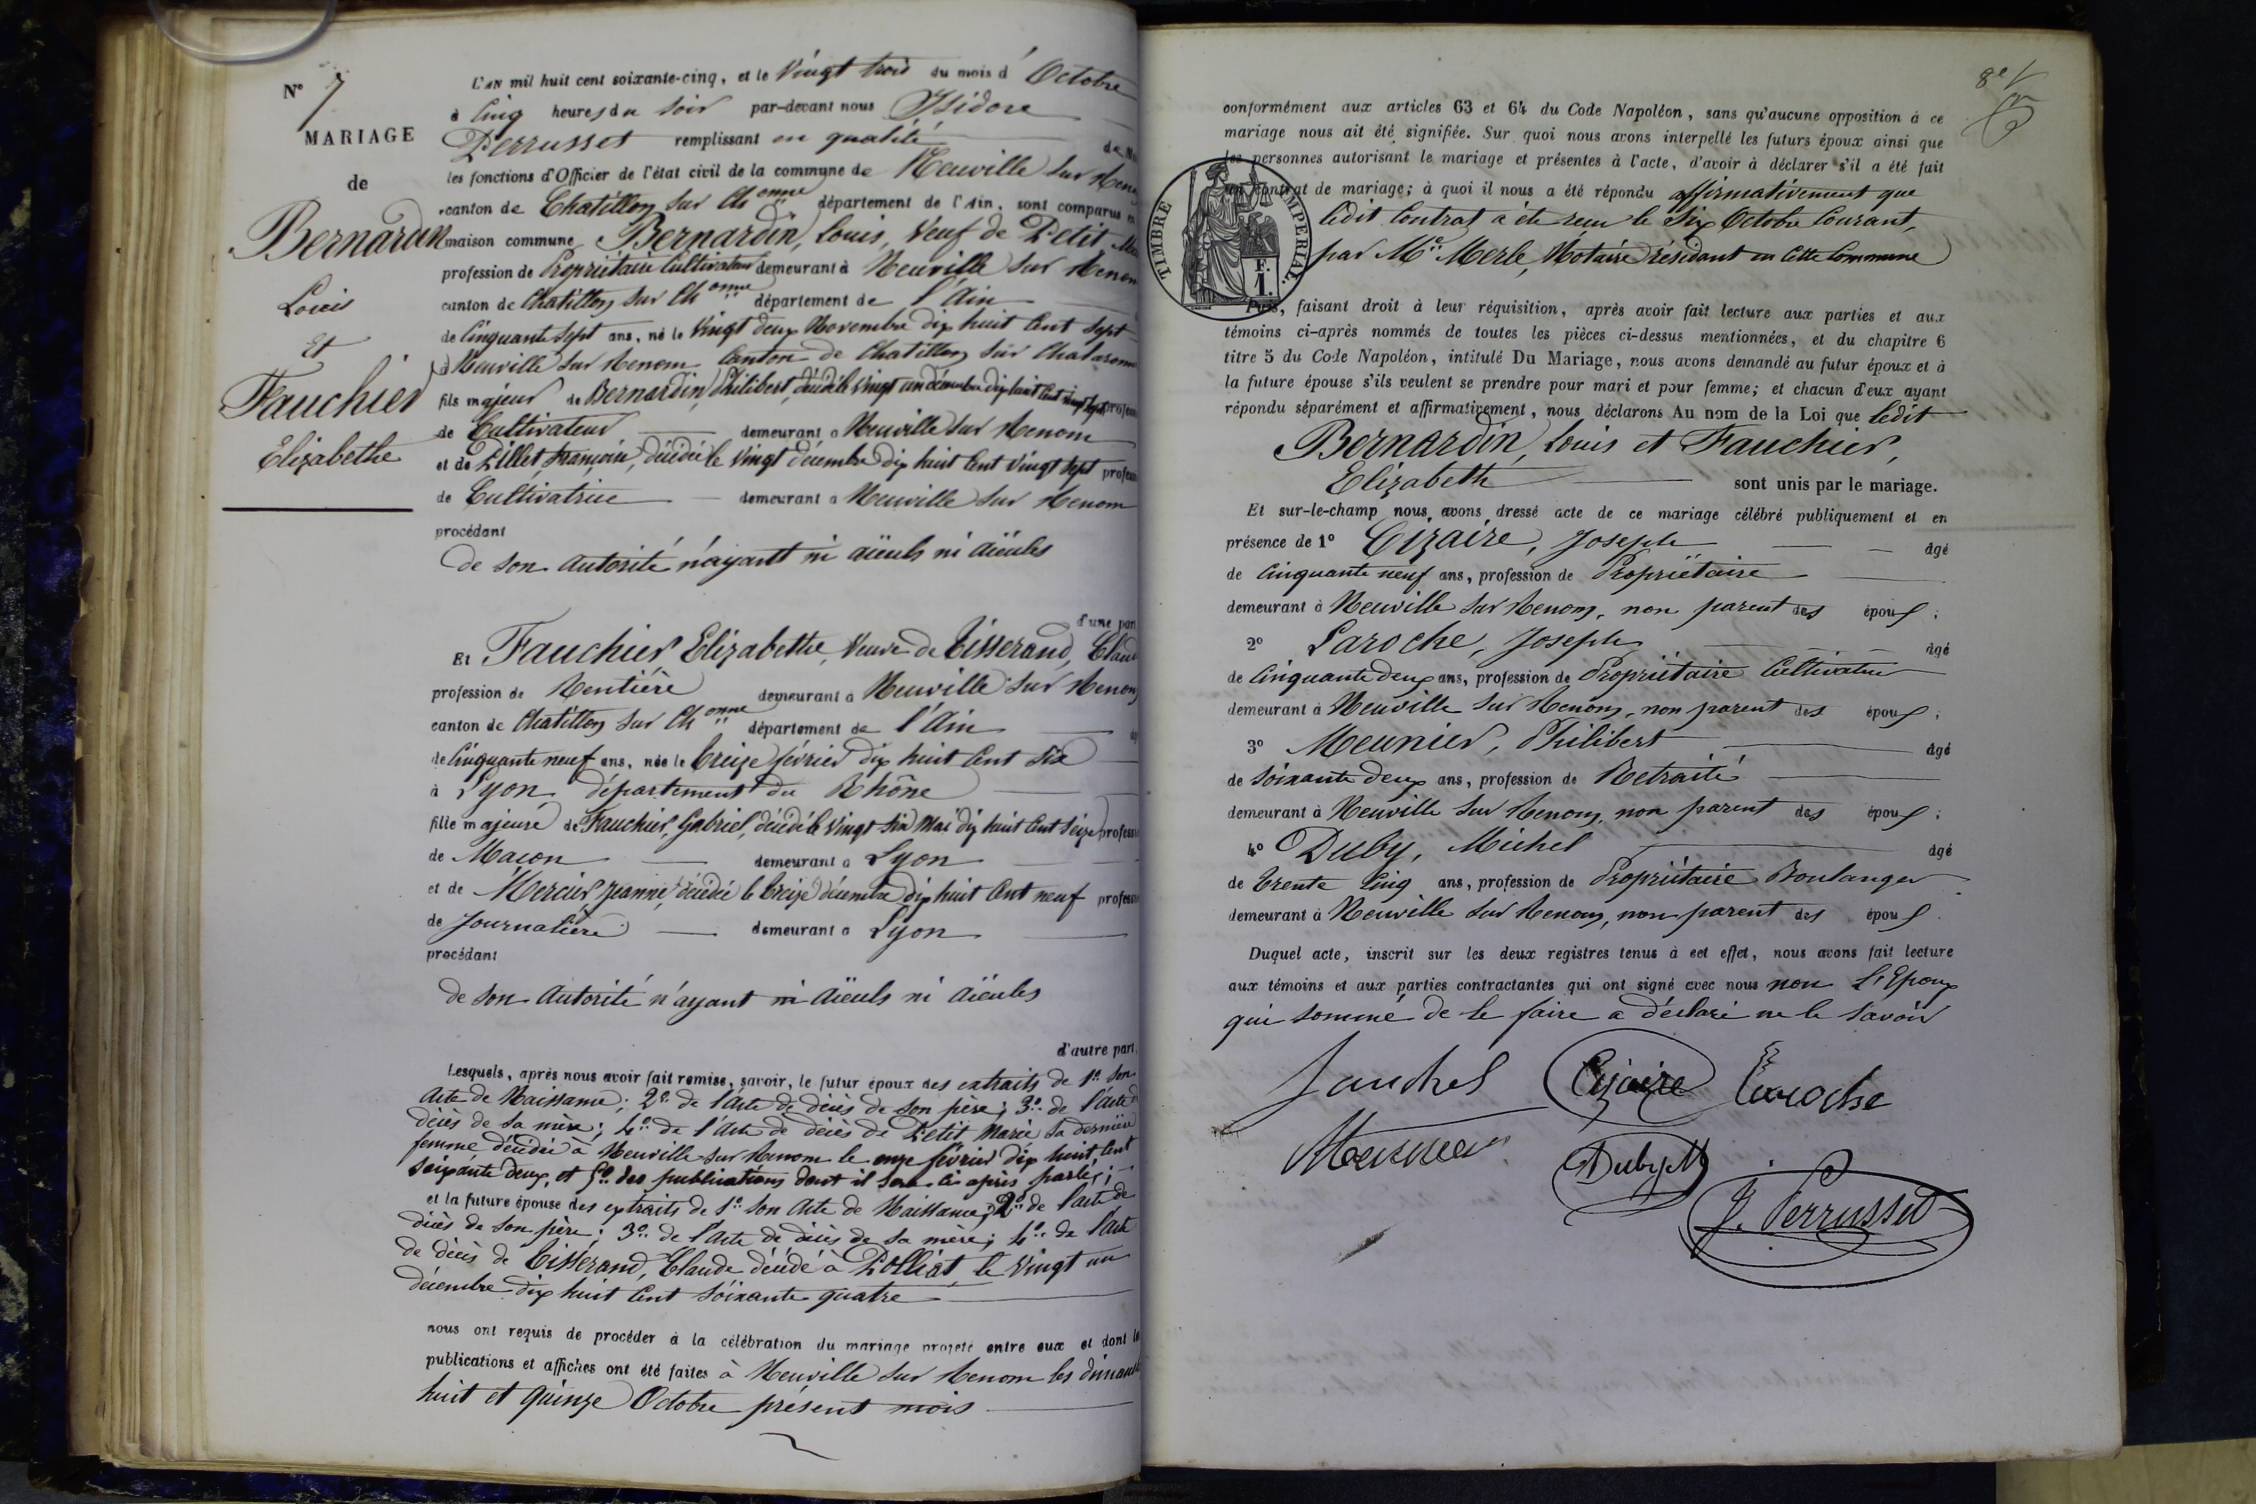 N° 7
MARIAGE
de
Bernardin
Louis
Et
Fauchier
Elizabethe
L'AN mil huit cent soixante-cinq, et le Vingt trois du mois d' Octobre
à Cinq heures du Soir par-devant nous Isidore
Perrusset remplissant en qualité de
les fonctions d'Officier de l'état civil de la commune de Neuville sur Renon
canton de Chatillon sur Ch onne département de l'Ain, sont comparus en
maison commune Bernardin, Louis, Veuf de Petit
profession de Propriétaire Cultivateur demeurant à Neuville sur Renom
canton de Chatillon sur Ch onne département de l'Ain
de Cinquante Sept ans, né le Vingt deux Novembre dix huit Cent Sept
à Neuville sur Renom Canton de Chatillon sur Chalaronne
fils majeur de Bernardin Philibert, décédé le Vingt un décembre dix huit Cent vingt sept
de Cultivateur demeurant à Neuville sur Renom
et de Pillet, Françoise, décédée le Vingt décembre dix huit Cent Vingt Sept profession
de Cultivatrice demeurant à Neuville sur Renom
procédant
de son autorité n'ayant ni aïeuls ni aïeules
d'une part
Et Fauchier Elizabethe, Veuve de Tisserand, Claude
profession de Rentière demeurant à Neuville sur Renom
canton de Chatillon sur Ch onne département de l'Ain
de Cinquante neuf ans, née le treize février dix huit Cent Six
à Lyon département du Rhône
fille majeure de Fauchier, Gabriel, décédé le Vingt Six Mai dix huit Cent Seize profession
de Maçon demeurant à Lyon
et de Mercier, Jeanne, décédée le treize décembre dix huit Cent neuf profession
de Journalière demeurant à Lyon
procédant
de son autorité n'ayant ni aïeuls ni aïeules
d'autre part,
Lesquels, après nous avoir fait remise, savoir, le futur époux des extraits de 1° Son
Acte de Naissance; 2° de l'Acte de décès de son père; 3° de l'acte de
décès de sa mère; 4° de l'Acte de décès de Petit Marie sa dernière
femme décédée à Neuville sur Renom le onze février dix huit Cent
soixante deux, et 5° des publications dont il sera ci après parlé;
et la future épouse des extraits de 1° son Acte de Naissance; 2° de l'acte de
décès de son père; 3° de l'Acte de décès de sa mère; 4° de l'acte
de décès de Tisserand, Claude décédé à Polliat le Vingt un
décembre dix huit Cent Soixante quatre
nous ont requis de procéder à la célébration du mariage projeté entre eux et dont les
publications et affiches ont été faites à Neuville sur Renom les dimanches
huit et quinze Octobre présent mois
8e
conformément aux articles 63 et 64 du Code Napoléon, sans qu'aucune opposition à ce
mariage nous ait été signifiée. Sur quoi nous avons interpellé les futurs époux ainsi que
les personnes autorisant le mariage et présentes à l'acte, d'avoir à déclarer s'il a été fait
un contrat de mariage; à quoi il nous a été répondu affirmativement que
ledit Contrat a été reçu le Six Octobre Courant,
par Me Merle, Notaire résidant en cette Commune
TIMBRE IMPERIAL.
F.
1.
Puis, faisant droit à leur réquisition, après avoir fait lecture aux parties et aux
témoins ci-après nommés de toutes les pièces ci-dessus mentionnées, et du chapitre 6
titre 5 du Code Napoléon, intitulé Du Mariage, nous avons demandé au futur époux et à
la future épouse s'ils veulent se prendre pour mari et pour femme; et chacun d'eux ayant
répondu séparément et affirmativement, nous déclarons Au nom de la Loi que ledit
Bernardin, Louis et Fauchier,
Elizabeth sont unis par le mariage.
Et sur-le-champ nous avons dressé acte de ce mariage célébré publiquement et en
présence de 1° Cizaire, Joseph âgé
de Cinquante neuf ans, profession de Propriétaire
demeurant à Neuville sur Renom, non parent des époux;
2° Laroche, Joseph âgé
de Cinquante deux ans, profession de Propriétaire Cultivateur
demeurant à Neuville sur Renom, non parent des époux;
3° Meunier, Philibert âgé
de Soixante deux ans, profession de Retraité
demeurant à Neuville sur Renom, non parent des époux;
4° Duby, Michel âgé
de trente Cinq ans, profession de Propriétaire Boulanger
demeurant à Neuville sur Renom, non parent des époux
Duquel acte, inscrit sur les deux registres tenus à cet effet, nous avons fait lecture
aux témoins et aux parties contractantes qui ont signé avec nous non l'Epoux
qui sommé de le faire a déclaré ne le savoir
Cizaire Laroche
Meunier
Duby M
J. Perrusset